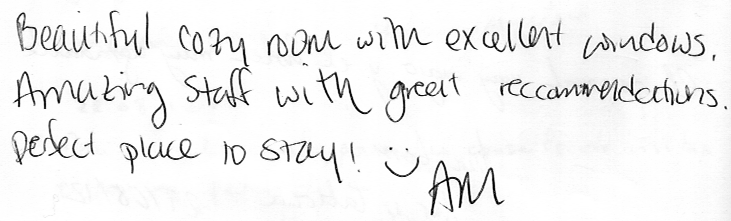 Beautiful cozy room with excellent windows.
Amazing staff with great reccommendations.
Perfect place to stay! :)
AM